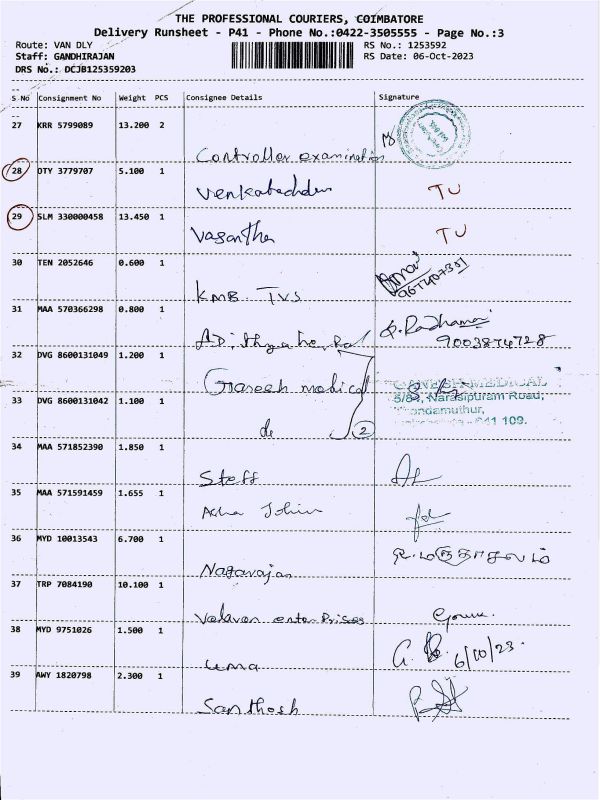 THE PROFESSIONAL COURIERS, COIMBATORE
Delivery Runsheet - P41 - Phone No.:0422-3505555 - Page No.:3
Route: VAN DLY RS No.: 1253592
Staff: GANDHIRAJAN RS Date: 06-Oct-2023
DRS No.: DCJB125359203
S No Consignment No Weight PCS Consignee Details Signature
27 KRR 5799089 13.200 2
Controller examination
28 OTY 3779707 5.100 1
Venkatachalam TU
29 SLM 330000458 13.450 1
Vasantha TU
30 TEN 2052646 0.600 1
KMB TVS
31 MAA 570366298 0.800 1
9003874728
32 DVG 8600131049 1.200 1
Ganesh medical GANESH MEDICAL
33 DVG 8600131042 1.100 1 5/84, Narasipuram Road,
Thondamuthur,
do 2 641 109.
34 MAA 571852390 1.850 1
Steff
35 MAA 571591459 1.655 1
Asha John
36 MYD 10013543 6.700 1
Nagarajan
37 TRP 7084190 10.100 1
Valavan enterprises
38 MYD 9751026 1.500 1
uma 6/10/23
39 AWY 1820798 2.300 1
Santhosh